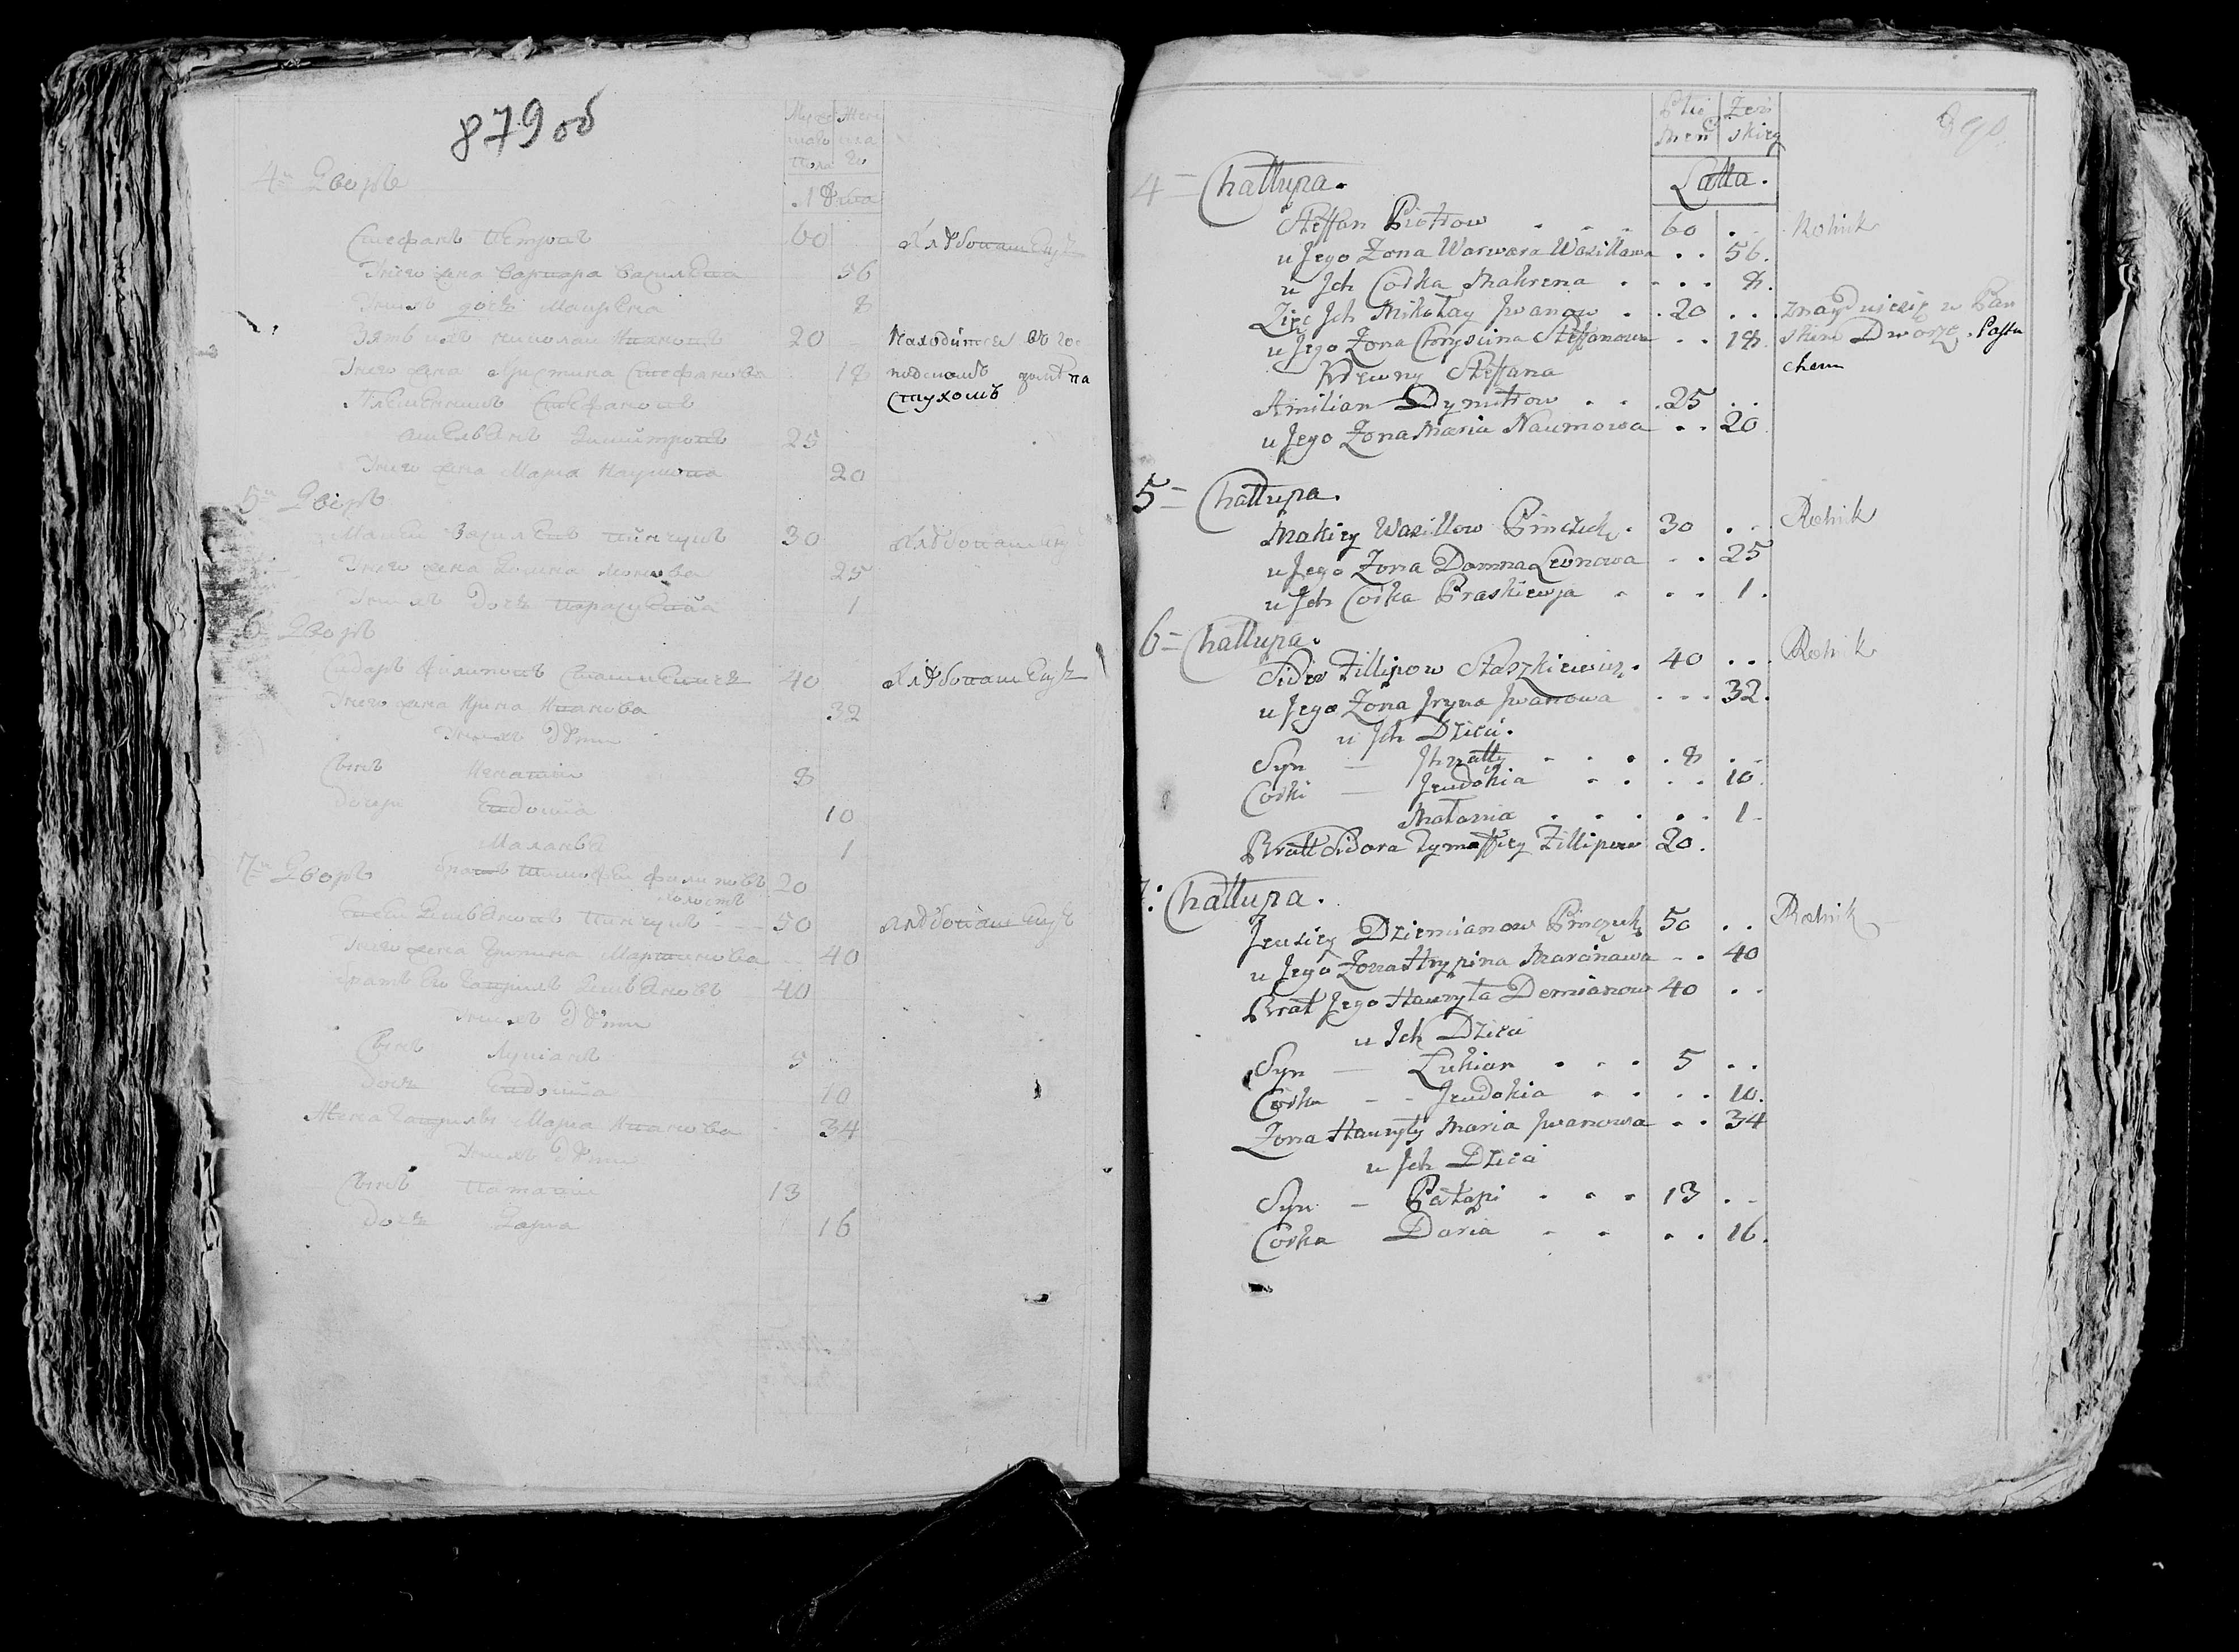 879 об
Муже Жен
4й Дворъ
Лѣта
Стефанъ Петровъ 60 Хлѣбопашецъ
У него жена Варвара Василева 56
У нихъ дочь Маврена 8
Зять ихъ Николай Ивановъ 20 Находится въ го
У него жена Христина Стефанова 18 подскомъ дворѣ па
Племенникъ Стефановъ стухомъ
Амельянъ Димитровъ 25
У него жена Марѝа Наумова 20
5й Дворъ
Макей Василевъ Пинчукъ 30 Хлѣбопашецъ
У него жена Домна Леонова 25
У нихъ дочь Параскевиа 1
6 Дворъ
Сидоръ Филиповъ Сташкевичъ 40 Хлѣбопашецъ
У него жена Ирина Иванова 32
У нихъ дѣти
Сынъ Игнатий 8
Дочери Евдокиа 10
Маланья 1
7й Дворъ братъ Тимофей Филиповъ 20
холостъ
Евсей Демьяновъ Пинчукъ 50 Хлѣбопашецъ
У него жена Грипина Мартинова 40
братъ его Гаврилъ Демьяновъ 40
У нихъ дѣти
Сынъ Лукианъ 5
Дочь Евдокиа 10
Жена Гаврилы Мариа Иванова 34
У нихъ дѣти
Сынъ Потапий 13
Дочь Дариа 16
890
Płci Żeń
Męs skiey
4 = Chałłupa. Latta.
Steffan Piotrow . . . 60 . . Rolnik
u Jego Zona Warwara Wasillawa . . 56.
u Jch Corka Mahrena . . . . 8.
Zięc Jch Mikołay Jwanow . . 20 . . . znayduiesię w Pan
u Jego Zona Chryscina Steffanowa . . 18. skim Dworze Pastu
Krewny Steffana chem
Amilian Dymitrow . . . 25 . .
u Jego Zona Maria Naumowa . . 20
5 = Chałłupa.
Makiey Wasillow Pinczuk . 30 . . Rolnik
u Jego Zona Domna Leonowa . . 25
u Jch Corka Praskiewja . . . 1.
6 = Chałłupa.
Sidor Fillipow Staszkiewicz . 40 . . . Rolnik
u Jego Zona Jryna Jwanowa . . . 32.
u Jch Dzieci.
Syn — Jhnatty . . . . 8 . .
Corki — Jeudokia . . . . 10.
Małania . . . . . 1.
Bratt Sidora Tymoffiey Fillipow 20.
7: Chałłupa.
Jeusiey Dziemianow Pinczuk 50 . . Rolnik
u Jego Zona Hrypina Marcinawa . . 40
Brat Jego Hauryła Demianow 40 . .
u Jch Dzieci
Syn — Lukian . . . 5 . .
Corka - - Jeudokia . . . . 10.
Zona Hauryły Maria Jwanowa . . 34
u Jch Dzieci
Syn — Patapi . . . 13 . .
Corka Daria . . . . 16.